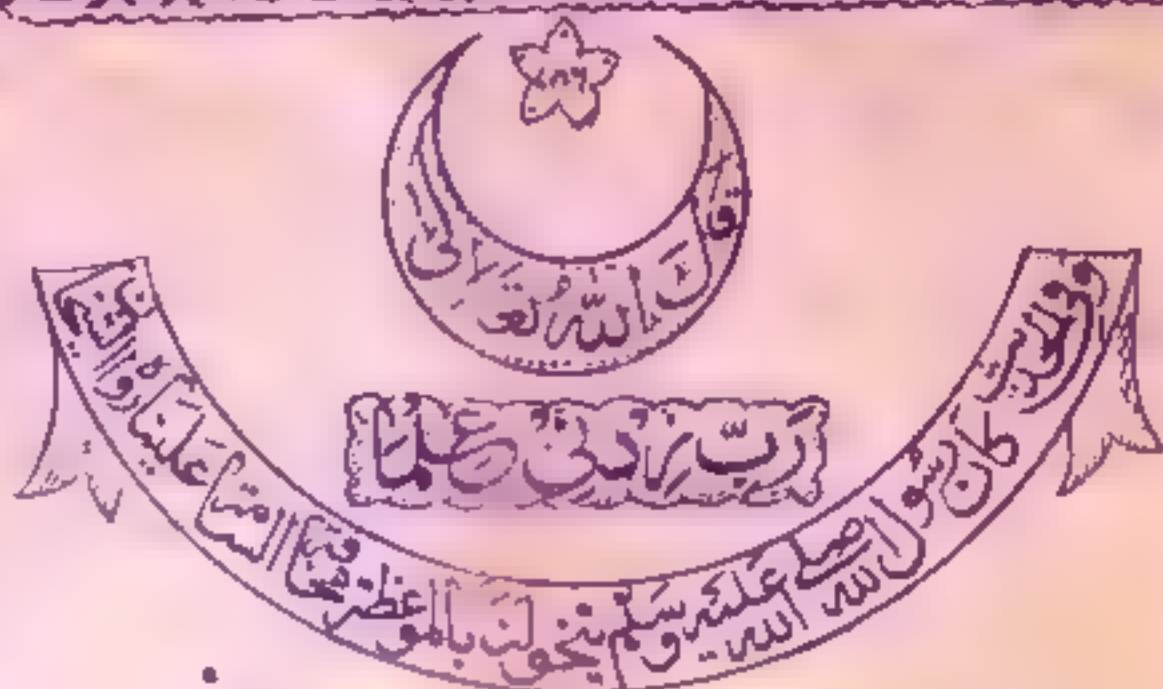 ٧٨٦
قال الله تعالى
رَبِّ زدنی علما
وفى الحديث كان رسول الله صلى الله عليه وسلم يتخولنا بالموعظة مخافة السامة علينا